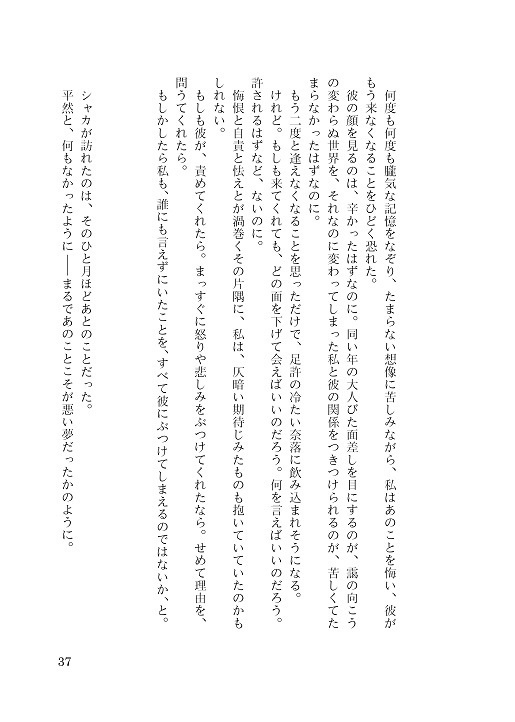 何度も何度も朧気な記憶をなぞり、たまらない想像に苦しみながら、私はあのことを悔い、彼が
もう来なくなることをひどく恐れた。
彼の顔を見るのは、辛かったはずなのに。同い年の大人びた面差しを目にするのが、靄の向こう
の変わらぬ世界を、それなのに変わってしまった私と彼の関係をつきつけられるのが、苦しくてた
まらなかったはずなのに。
もう二度と逢えなくなることを思っただけで、足許の冷たい奈落に飲み込まれそうになる。
けれど。もしも来てくれても、どの面を下げて会えばいいのだろう。何を言えばいいのだろう。
許されるはずなど、ないのに。
悔恨と自責と怯えとが渦巻くその片隅に、私は、仄暗い期待じみたものも抱いていていたのかも
しれない。
もしも彼が、責めてくれたら。まっすぐに怒りや悲しみをぶつけてくれたなら。せめて理由を、
問うてくれたら。
もしかしたら私も、誰にも言えずにいたことを、すべて彼にぶつけてしまえるのではないか、と。
シャカが訪れたのは、そのひと月ほどあとのことだった。
平然と、何もなかったように――まるであのことこそが悪い夢だったかのように。
37